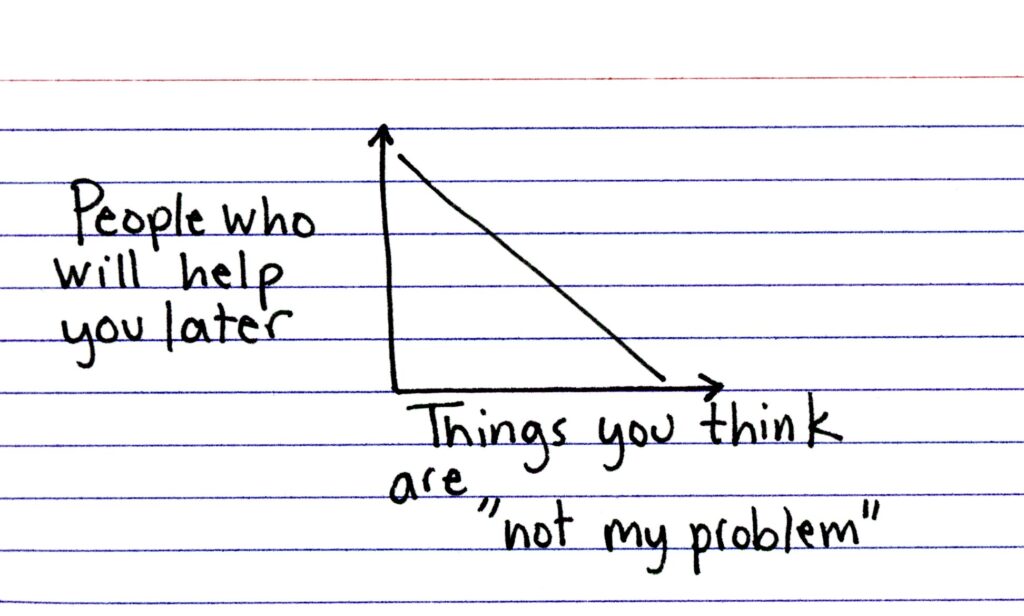 People who
will help
you later
Things you think
are
"not my problem"